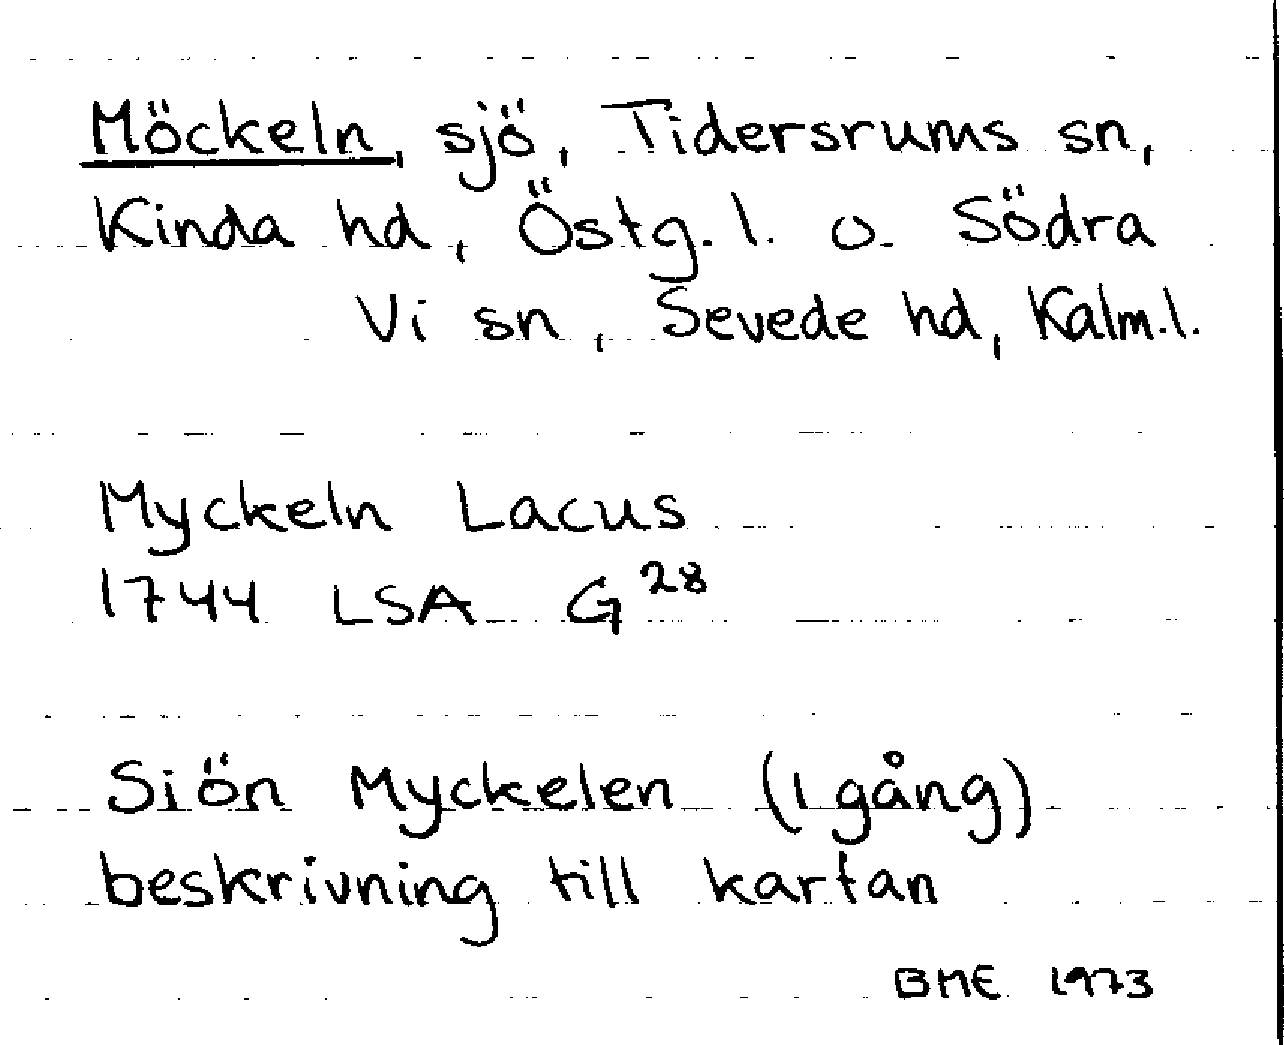 Möckeln, sjö, Tidersrums sn,
Kinda hd, Östg. l. o. Södra
Vi sn, Sevede hd, Kalm.l.
Myckeln Lacus
1744 LSA G28
Siön Myckelen (1 gång)
beskrivning till kartan
BME 1973